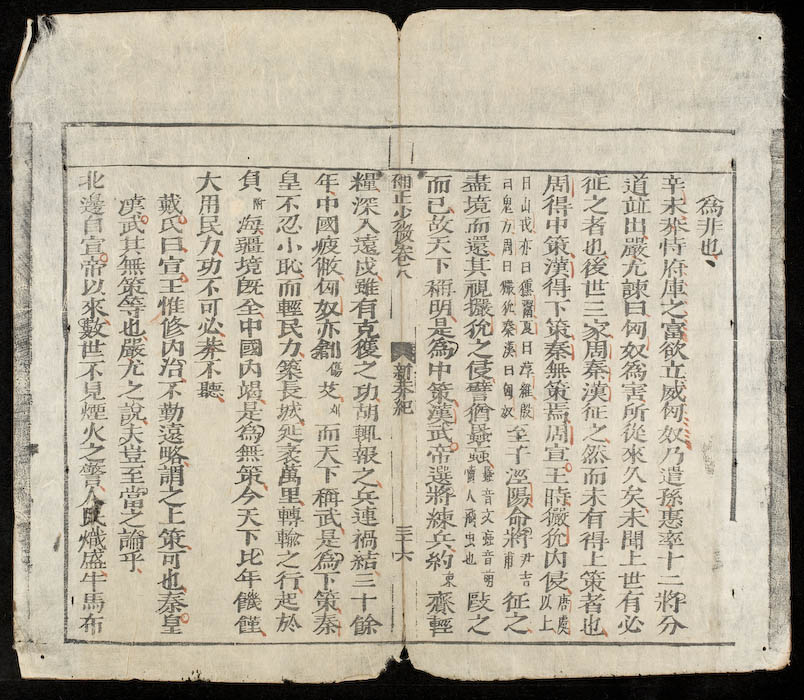 為非也
辛未莽恃府庫之富欲立威匈奴乃遣孫惠率十二將分
道並出嚴尤諫曰匈奴為害所從來久矣未聞上世有必
征之者也後世三家周秦漢征之然而未有得上策者也
周得中策漢得下策秦無策焉周宣王時玁狁內侵唐虞以上
曰山戎亦曰獯鬻夏曰淳維殷曰鬼方周曰玁狁秦漢曰匈奴至于涇陽命將尹吉甫征之
盡境而還其視玁狁之侵譬猶蟁蝱蟁音文蝱音萌齧人飛虫也敺之
而已故天下稱明是為中策漢武帝選將練兵約束齎輕
補正少微卷八 新莽紀 三十六
糧深入遠戍雖有克獲之功胡輒報之兵連禍結三十餘
年中國疲敝匈奴亦創傷艾刈而天下稱武是為下策秦
皇不忍小恥而輕民力築長城延袤萬里轉輸之行起於
負附海疆境既全中國內竭是為無策今天下比年饑饉
大用民力功不可必莽不聽
戴氏曰宣王惟修內治不勤遠略謂之上策可也秦皇
漢武其無策等也嚴尤之說夫豈至當之論乎
北邊自宣帝以來數世不見煙火之警人民熾盛牛馬布